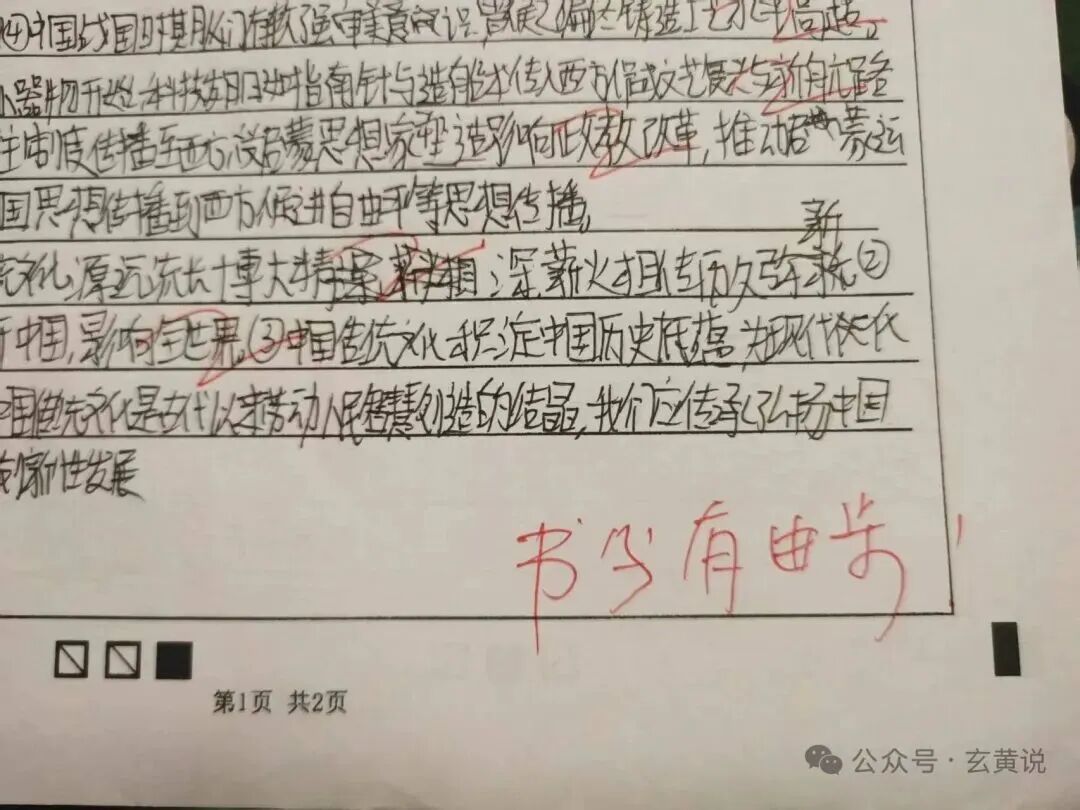 ④中国战国时期人们有较强审美意识,铸造工艺水平高超。
小器物开始,科技发明如指南针与造船术传入西方促成文艺复兴与新航路
主制度传播至西方被启蒙思想家塑造影响政教改革,推动启蒙运
国思想传播到西方促进自由平等思想传播。
文化源远流长博大精深,薪火相传历久弥新②
于中国,影响全世界。③中国传统文化积淀中国历史底蕴,为现代
中国传统文化是古代以来劳动人民智慧创造的结晶,我们应传承弘扬中国
创新性发展
书写有进步
第1页 共2页
公众号·玄黄说